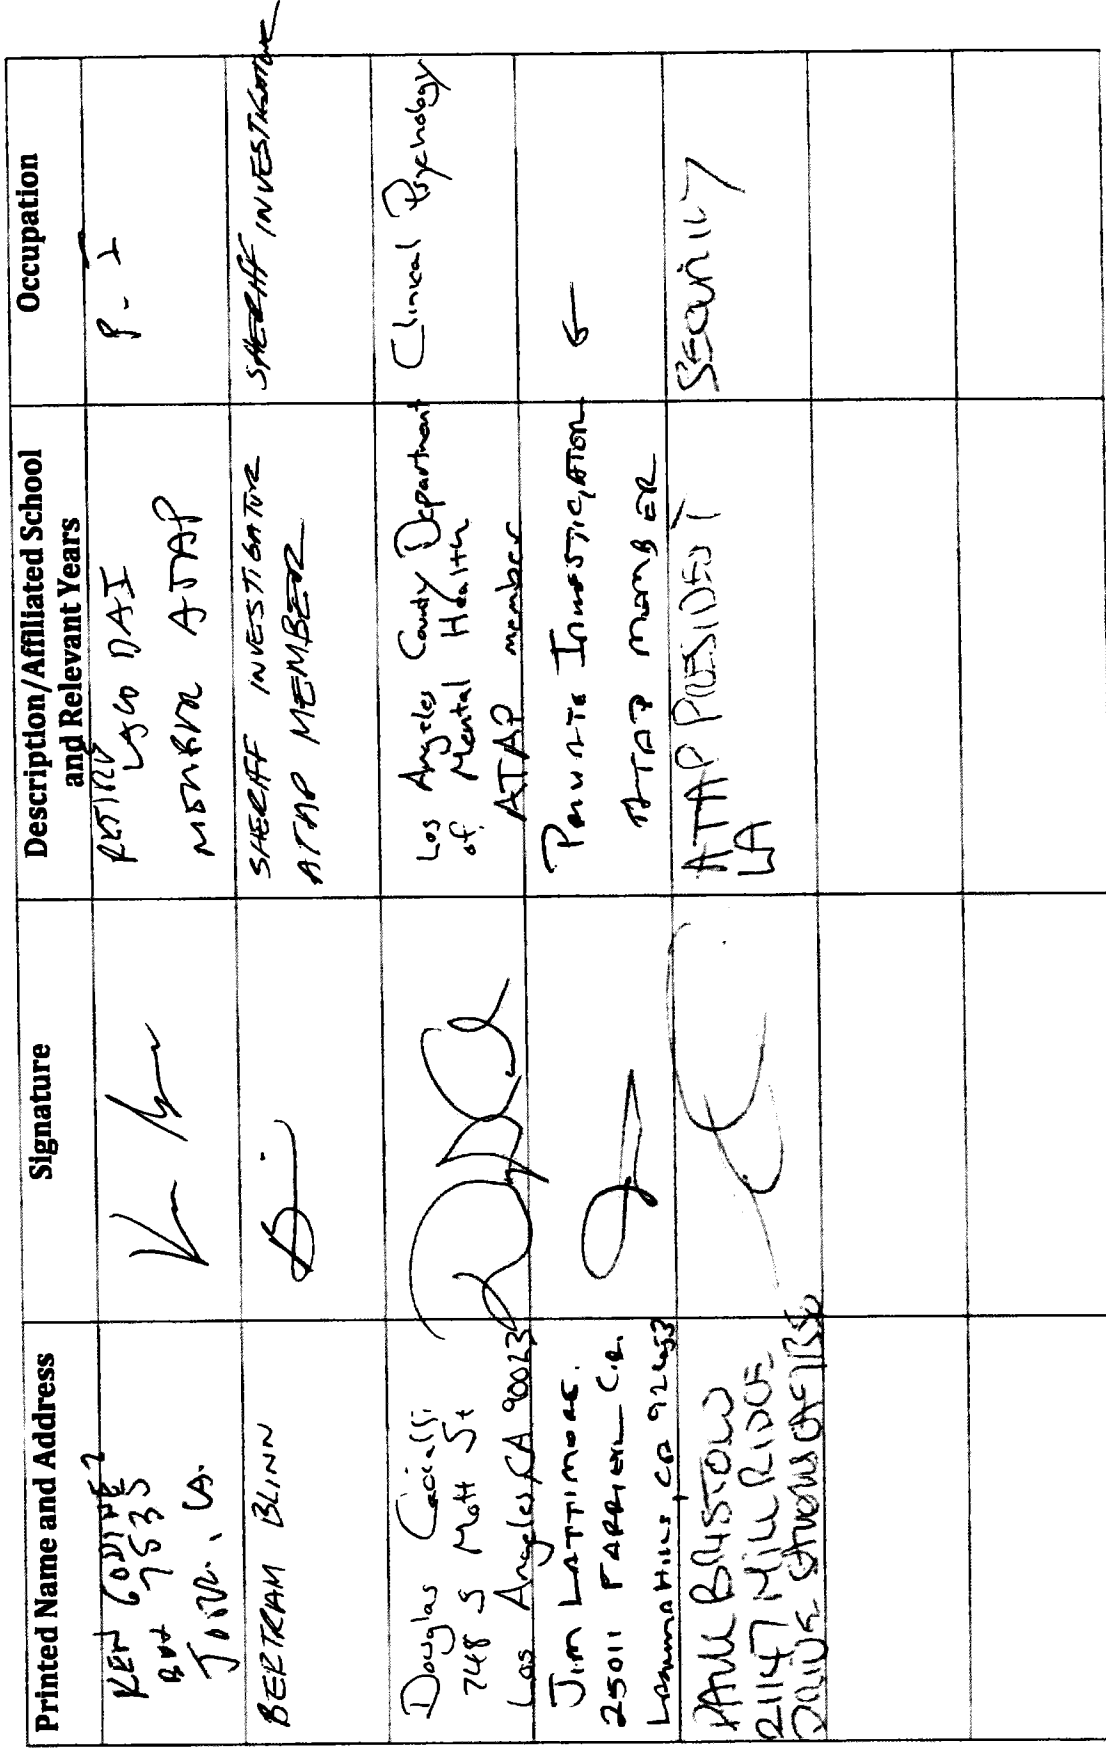 Printed Name and Address
Signature
Description/Affiliated School
and Relevant Years
Occupation
KEN
BOX 7535
LACO DAI
ATAP
P-I
BERTRAM BLINN
SHERIFF INVESTIGATOR
ATAP MEMBER
SHERIFF INVESTIGATOR
Douglas
748 S Mott St
Los Angeles, CA 90023
Los Angeles County Department
of Mental Health
ATAP member
Clinical Psychology
JIM LATTIMORE.
25011 FARRIER CIR.
LAGUNA HILLS, CA 92653
PRIVATE INVESTIGATION
ATAP MEMBER
←
PAUL BRISTOW
21147 MILL RIDGE
DRIVE
ATAP PRESIDENT
LA
SECURITY